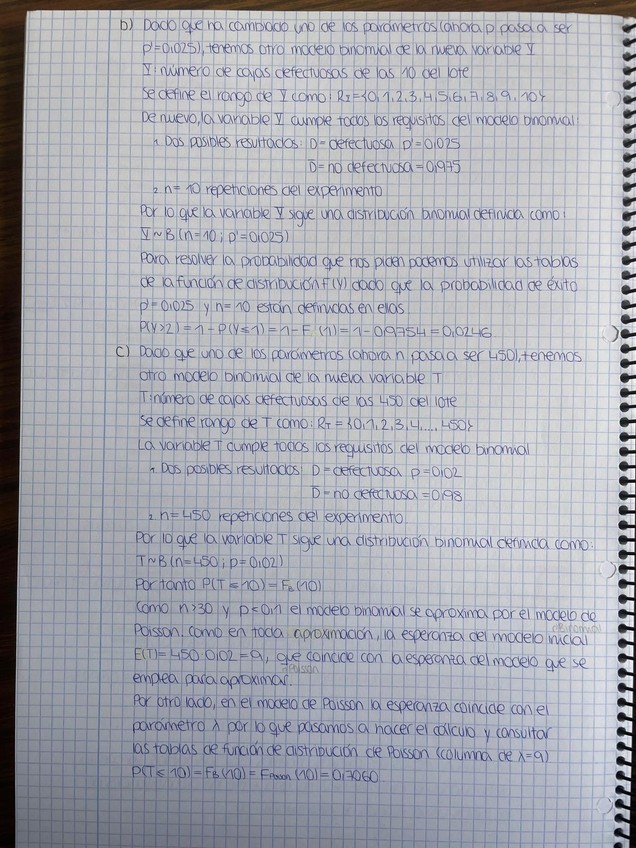 b) Dado que ha cambiado uno de los parámetros (ahora p pasa a ser
p'=0,025), tenemos otro modelo binomial de la nueva variable Y
Y: número de cajas defectuosas de las 10 del lote
Se define el rango de Y como: RY={0,1,2,3,4,5,6,7,8,9,10}
De nuevo, la variable Y cumple todos los requisitos del modelo binomial:
1. Dos posibles resultados: D = defectuosa p'=0,025
D̅ = no defectuosa = 0,975
2. n = 10 repeticiones del experimento
Por lo que la variable Y sigue una distribución binomial definida como:
Y~B(n=10; p'=0,025)
Para resolver la probabilidad que nos piden podemos utilizar las tablas
de la función de distribución F(Y) dado que la probabilidad de éxito
p'=0,025 y n=10 están definidas en ellas
P(Y≥2)=1-P(Y≤1)=1-F(1)=1-0,9754=0,0246
c) Dado que uno de los parámetros (ahora n pasa a ser 450), tenemos
otro modelo binomial de la nueva variable T
T: número de cajas defectuosas de las 450 del lote
Se define rango de T como: RT={0,1,2,3,4,...,450}
La variable T cumple todos los requisitos del modelo binomial
1. Dos posibles resultados: D = defectuosa p=0,02
D̅ = no defectuosa = 0,98
2. n=450 repeticiones del experimento
Por lo que la variable T sigue una distribución binomial definida como:
T~B(n=450; p=0,02)
Por tanto P(T≤10)=FB(10)
Como n>30 y p≤0,1 el modelo binomial se aproxima por el modelo de
Poisson. Como en toda aproximación, la esperanza del modelo inicial
binomial
E(T)=450·0,02=9, que coincide con la esperanza del modelo que se
Poisson
emplea para aproximar.
Por otro lado, en el modelo de Poisson la esperanza coincide con el
parámetro λ por lo que pasamos a hacer el cálculo y consultar
las tablas de función de distribución de Poisson (columna de λ=9)
P(T≤10)=FB(10)=FPoisson(10)=0,7060